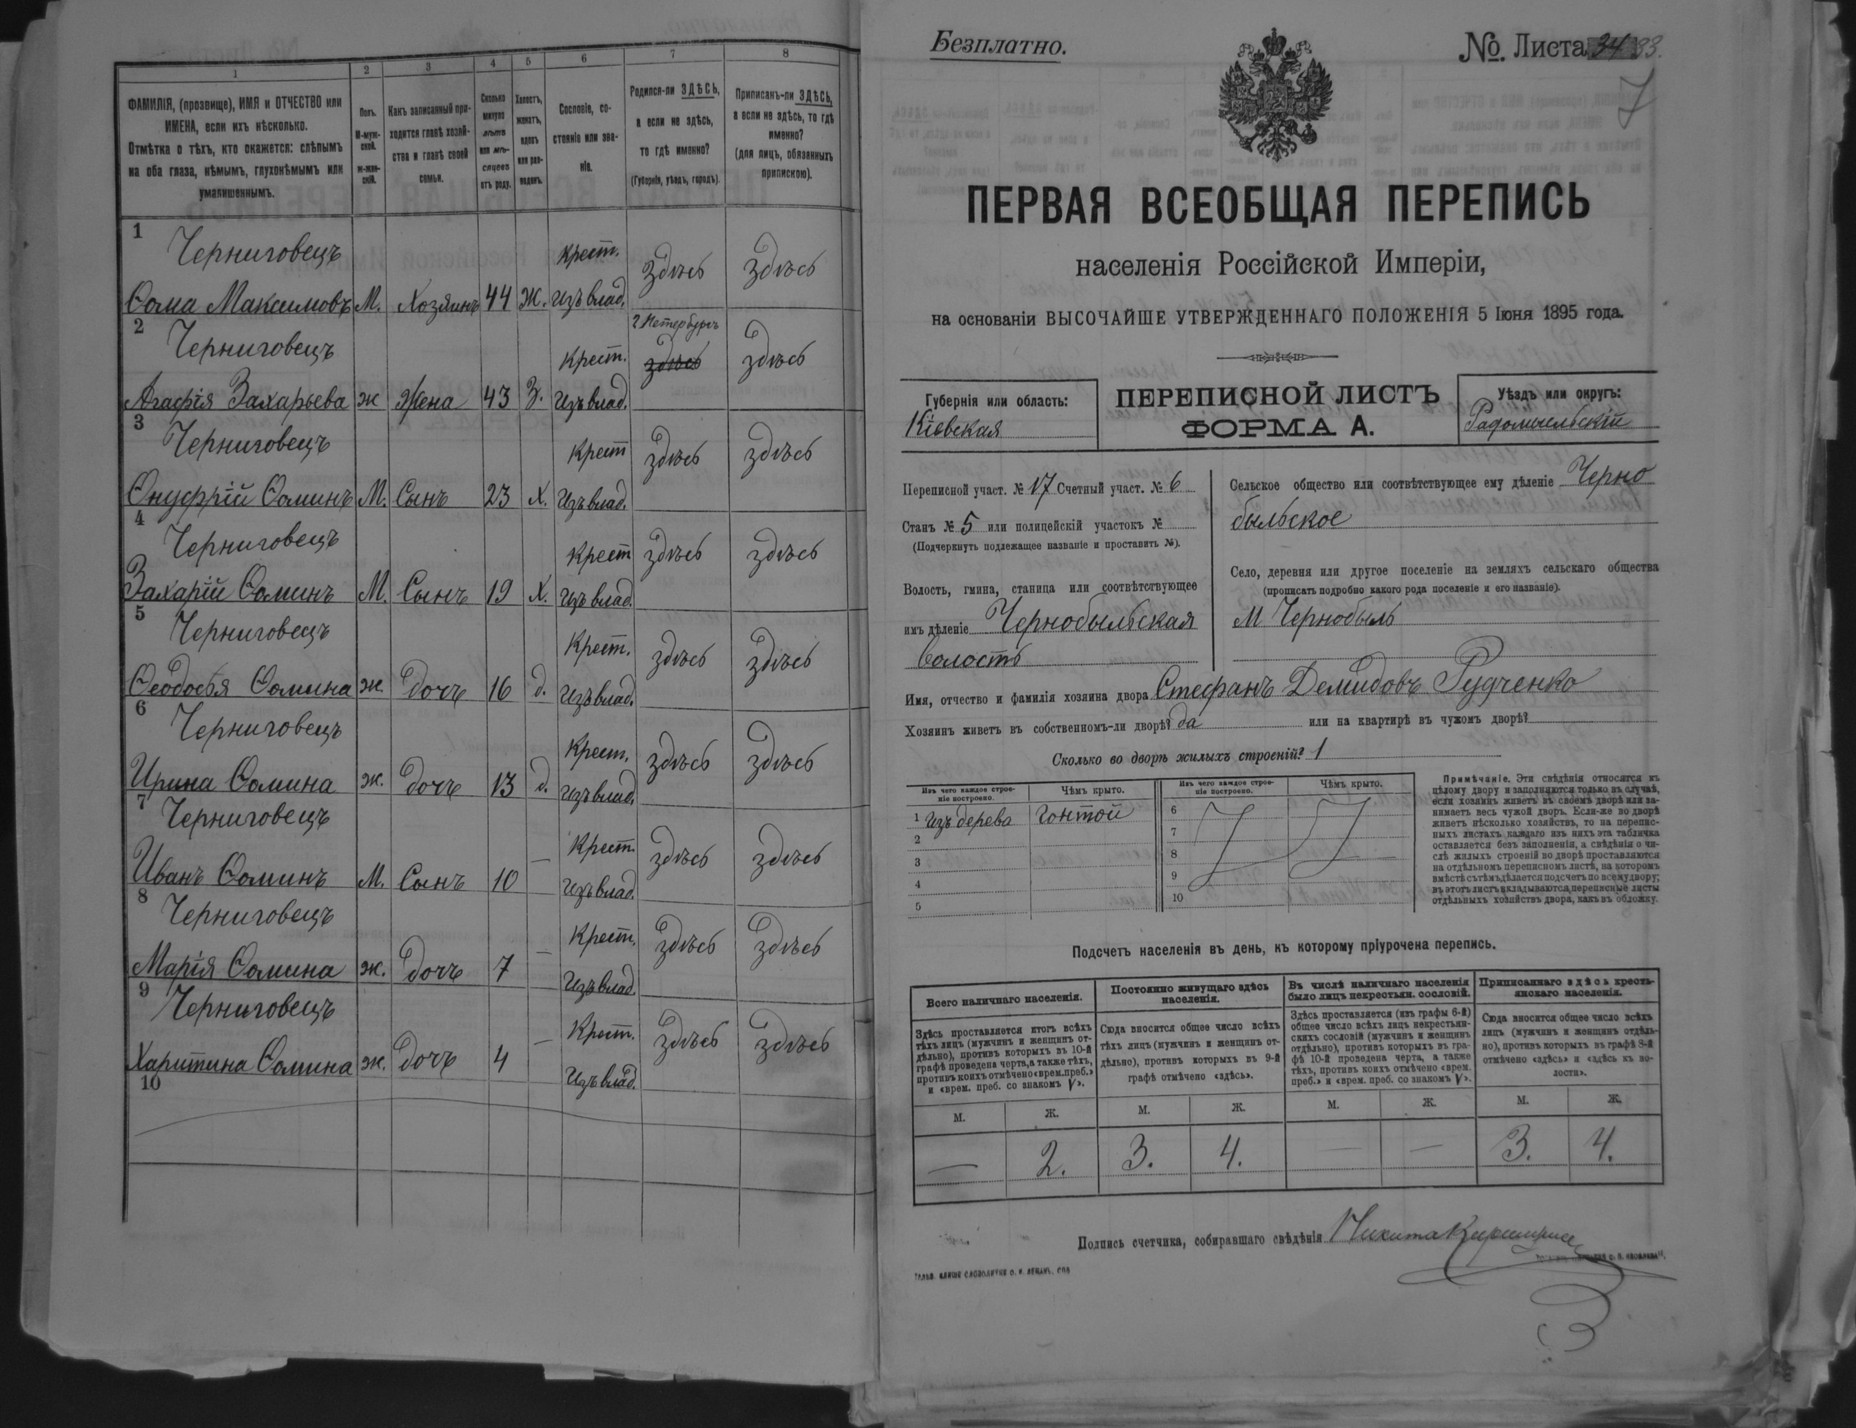 1 2 3 4 5 6 7 8
ФАМИЛІЯ, (прозвище), ИМЯ и ОТЧЕСТВО или
ИМЕНА, если ихъ нѣсколько.
Отмѣтка о тѣхъ, кто окажется: слѣпымъ
на оба глаза, нѣмымъ, глухонѣмымъ или
умалишеннымъ.
Полъ.
М-муж-
ской.
ж-жен-
скій.
Какъ записанный при-
ходится главѣ хозяй-
ства и главѣ своей
семьи.
Сколько
минуло
лѣтъ
или мѣ-
сяцевъ
отъ роду.
Холостъ,
женатъ,
вдовъ
или раз-
веденъ.
Сословіе, со-
стояніе или зва-
ніе.
Родился-ли ЗДѢСЬ,
а если не здѣсь,
то гдѣ именно?
(Губернія, уѣздъ, городъ).
Приписанъ-ли ЗДѢСЬ,
а если не здѣсь, то гдѣ
именно?
(для лицъ, обязанныхъ
припискою).
1 Черниговецъ Крест. здѣсь здѣсь
Ѳома Максимовъ М. Хозяинъ 44 Ж. Изъ влад.
2 Черниговецъ Крест. г. Петербургъ здѣсь здѣсь
Агафія Захарьева ж жена 43 З. Изъ влад.
3 Черниговецъ Крест здѣсь здѣсь
Онуфрій Ѳоминъ М. Сынъ 23 Х. Изъ влад.
4 Черниговецъ Крест здѣсь здѣсь
Захарій Ѳоминъ М. Сынъ 19 Х. Изъ влад.
5 Черниговецъ Крест. здѣсь здѣсь
Ѳеодосія Ѳомина ж. дочь 16 д. Изъ влад.
6 Черниговецъ Крест. здѣсь здѣсь
Ирина Ѳомина ж. дочь 13 д. Изъ влад.
7 Черниговецъ Крест. здѣсь здѣсь
Иванъ Ѳоминъ М. Сынъ 10 — Изъ влад.
8 Черниговецъ Крест. здѣсь здѣсь
Марія Ѳомина ж. дочь 7 — Изъ влад.
9 Черниговецъ Крест. здѣсь здѣсь
Харитина Ѳомина ж. дочь 4 — Изъ влад.
10
Безплатно.
№. Листа 34 33.
7
ПЕРВАЯ ВСЕОБЩАЯ ПЕРЕПИСЬ
населенія Россійской Имперіи,
на основаніи ВЫСОЧАЙШЕ УТВЕРЖДЕННАГО ПОЛОЖЕНІЯ 5 Іюня 1895 года.
Губернія или область:
Кіевская
ПЕРЕПИСНОЙ ЛИСТЪ
ФОРМА А.
Уѣздъ или округъ:
Радомысльскій
Переписной участ. № 17 Счетный участ. № 6
Станъ № 5 или полицейскій участокъ №
(Подчеркнуть подлежащее названіе и проставить №).
Волость, гмина, станица или соотвѣтствующее
имъ дѣленіе Чернобыльская
волость
Сельское общество или соотвѣтствующее ему дѣленіе Черно
быльское
Село, деревня или другое поселеніе на земляхъ сельскаго общества
(прописать подробно какого рода поселеніе и его названіе).
М Чернобыль
Имя, отчество и фамилія хозяина двора Стефанъ Демидовъ Рудченко
Хозяинъ живетъ въ собственномъ-ли дворѣ? да или на квартирѣ въ чужомъ дворѣ?
Сколько во дворѣ жилыхъ строеній? 1
Изъ чего каждое строе-
ніе построено.
Чѣмъ крыто.
Изъ чего каждое строе-
ніе построено.
Чѣмъ крыто.
1 Изъ дерева Гонтой 6
2 7
3 8
4 9
5 10
Примѣчаніе. Эти свѣдѣнія относятся къ
цѣлому двору и заполняются только въ случаѣ,
если хозяинъ живетъ въ своемъ дворѣ или за-
нимаетъ весь чужой дворъ. Если-же во дворѣ
живетъ нѣсколько хозяйствъ, то на перепис-
ныхъ листахъ каждаго изъ нихъ эта табличка
оставляется безъ заполненія, а свѣдѣнія о чи-
слѣ жилыхъ строеній во дворѣ проставляются
на отдѣльномъ переписномъ листѣ, на которомъ
вмѣстѣ съ тѣмъ дѣлается подсчетъ по всему двору;
въ этотъ листъ вкладываются переписные листы
отдѣльныхъ хозяйствъ двора, какъ въ обложку.
Подсчетъ населенія въ день, къ которому пріурочена перепись.
Всего наличнаго населенія.
Постоянно живущаго здѣсь
населенія.
Въ числѣ наличнаго населенія
было лицъ некрестьян. сословій.
Приписаннаго здѣсь кресть-
янскаго населенія.
Здѣсь проставляется итогъ всѣхъ
тѣхъ лицъ (мужчинъ и женщинъ от-
дѣльно), противъ которыхъ въ 10-й
графѣ проведена черта, а также тѣхъ,
противъ коихъ отмѣчено «врем. преб.»
и «врем. преб. со знакомъ V».
Сюда вносится общее число всѣхъ
тѣхъ лицъ (мужчинъ и женщинъ от-
дѣльно), противъ которыхъ въ 9-й
графѣ отмѣчено «здѣсь».
Здѣсь проставляется (изъ графы 6-й)
общее число всѣхъ лицъ некрестьян-
скихъ сословій (мужчинъ и женщинъ
отдѣльно), противъ которыхъ въ гра-
фѣ 10-й проведена черта, а также
тѣхъ, противъ коихъ отмѣчено «врем.
преб.» и «врем. преб. со знакомъ V».
Сюда вносится общее число всѣхъ
лицъ (мужчинъ и женщинъ отдѣль-
но), противъ которыхъ въ графѣ 8-й
отмѣчено «здѣсь» и «здѣсь къ во-
лости».
М. Ж. М. Ж. М. Ж. М. Ж.
— 2. 3. 4. — — 3. 4.
Подпись счетчика, собиравшаго свѣдѣнія Никита